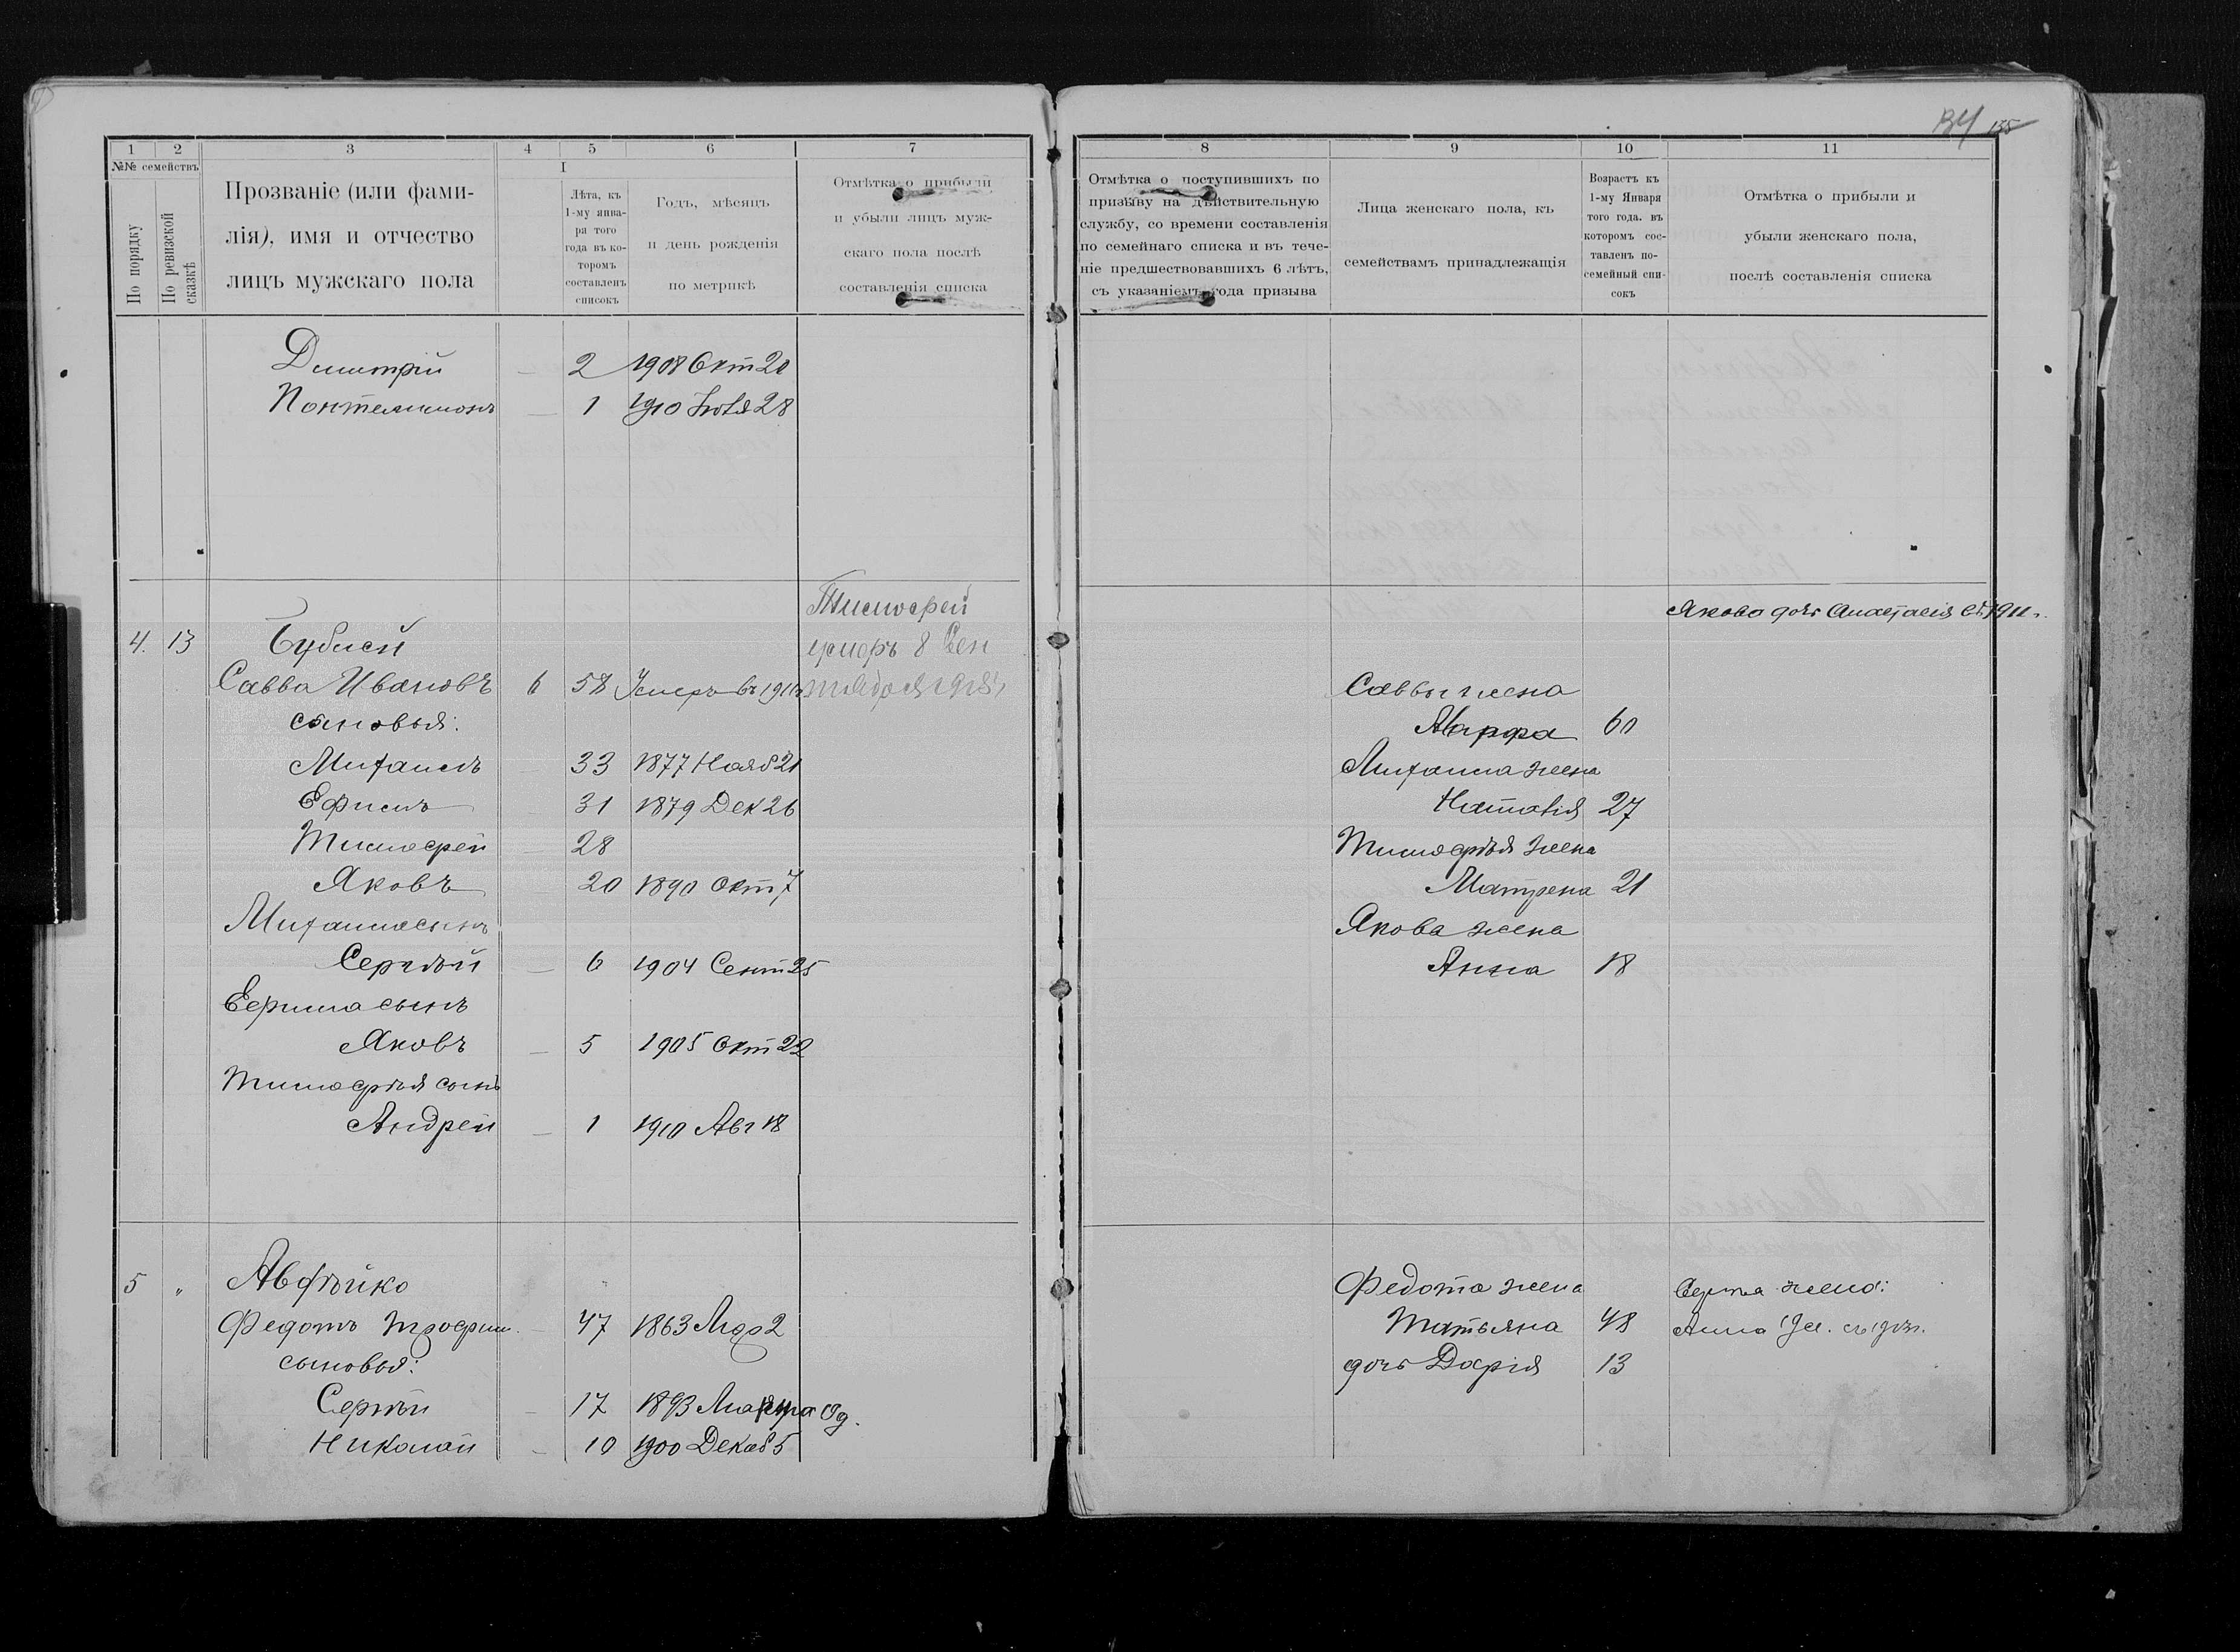 134 135
1 2 3 4 5 6 7
№№ семействъ
По порядку
По ревизской сказкѣ
Прозваніе (или фами-
лія), имя и отчество
лицъ мужскаго пола
I
Лѣта, къ
1-му янва-
ря того
года въ ко-
торомъ
составленъ
списокъ
Годъ, мѣсяцъ
и день рожденія
по метрикѣ
Отмѣтка о прибыли
и убыли лицъ муж-
скаго пола послѣ
составленія списка
Димитрій — 2 1908 Окт 20
Понтелимонъ — 1 1910 Іюля 28
Тимофей
умеръ 8 Сен
4. 13
Савва Ивановъ 6 58 Умеръ въ
сановья:
Михаилъ 33 1877 Нояб 21
Ефимъ 31 1879 Дек 26
Тимофей 28
Яковъ 20 1890 Окт 7
Михаила сынъ
Сергѣй — 6 1904 Сент 25
Ефима сынъ
Яковъ — 5 1905 Окт 22
Тимофѣя сынъ
Андрей — 1 1910 Авг 18
5 „ Авфѣйко
Федотъ Трофим. 47 1863 2
сыновья:
Сергѣй 17 1893
Николай 10 1900 Декаб 5
8 9 10 11
Отмѣтка о поступившихъ по
призыву на дѣйствительную
службу, со времени составленія
по семейнаго списка и въ тече-
ніе предшествовавшихъ 6 лѣтъ,
съ указаніемъ года призыва
Лица женскаго пола, къ
семействамъ принадлежащія
Возрастъ къ
1-му Января
того года. въ
которомъ сос-
тавленъ по-
семейный спи-
сокъ
Отмѣтка о прибыли и
убыли женскаго пола,
послѣ составленія списка
Якова дочь Анастасія 1911 г.
Саввы жена
Марфа 60
Михаила жена
Наталія 27
Тимофѣя жена
Матрена 21
Якова жена
Анна 18
Федота жена
Татьяна 48
дочь Дарія 13
жена:
Анна